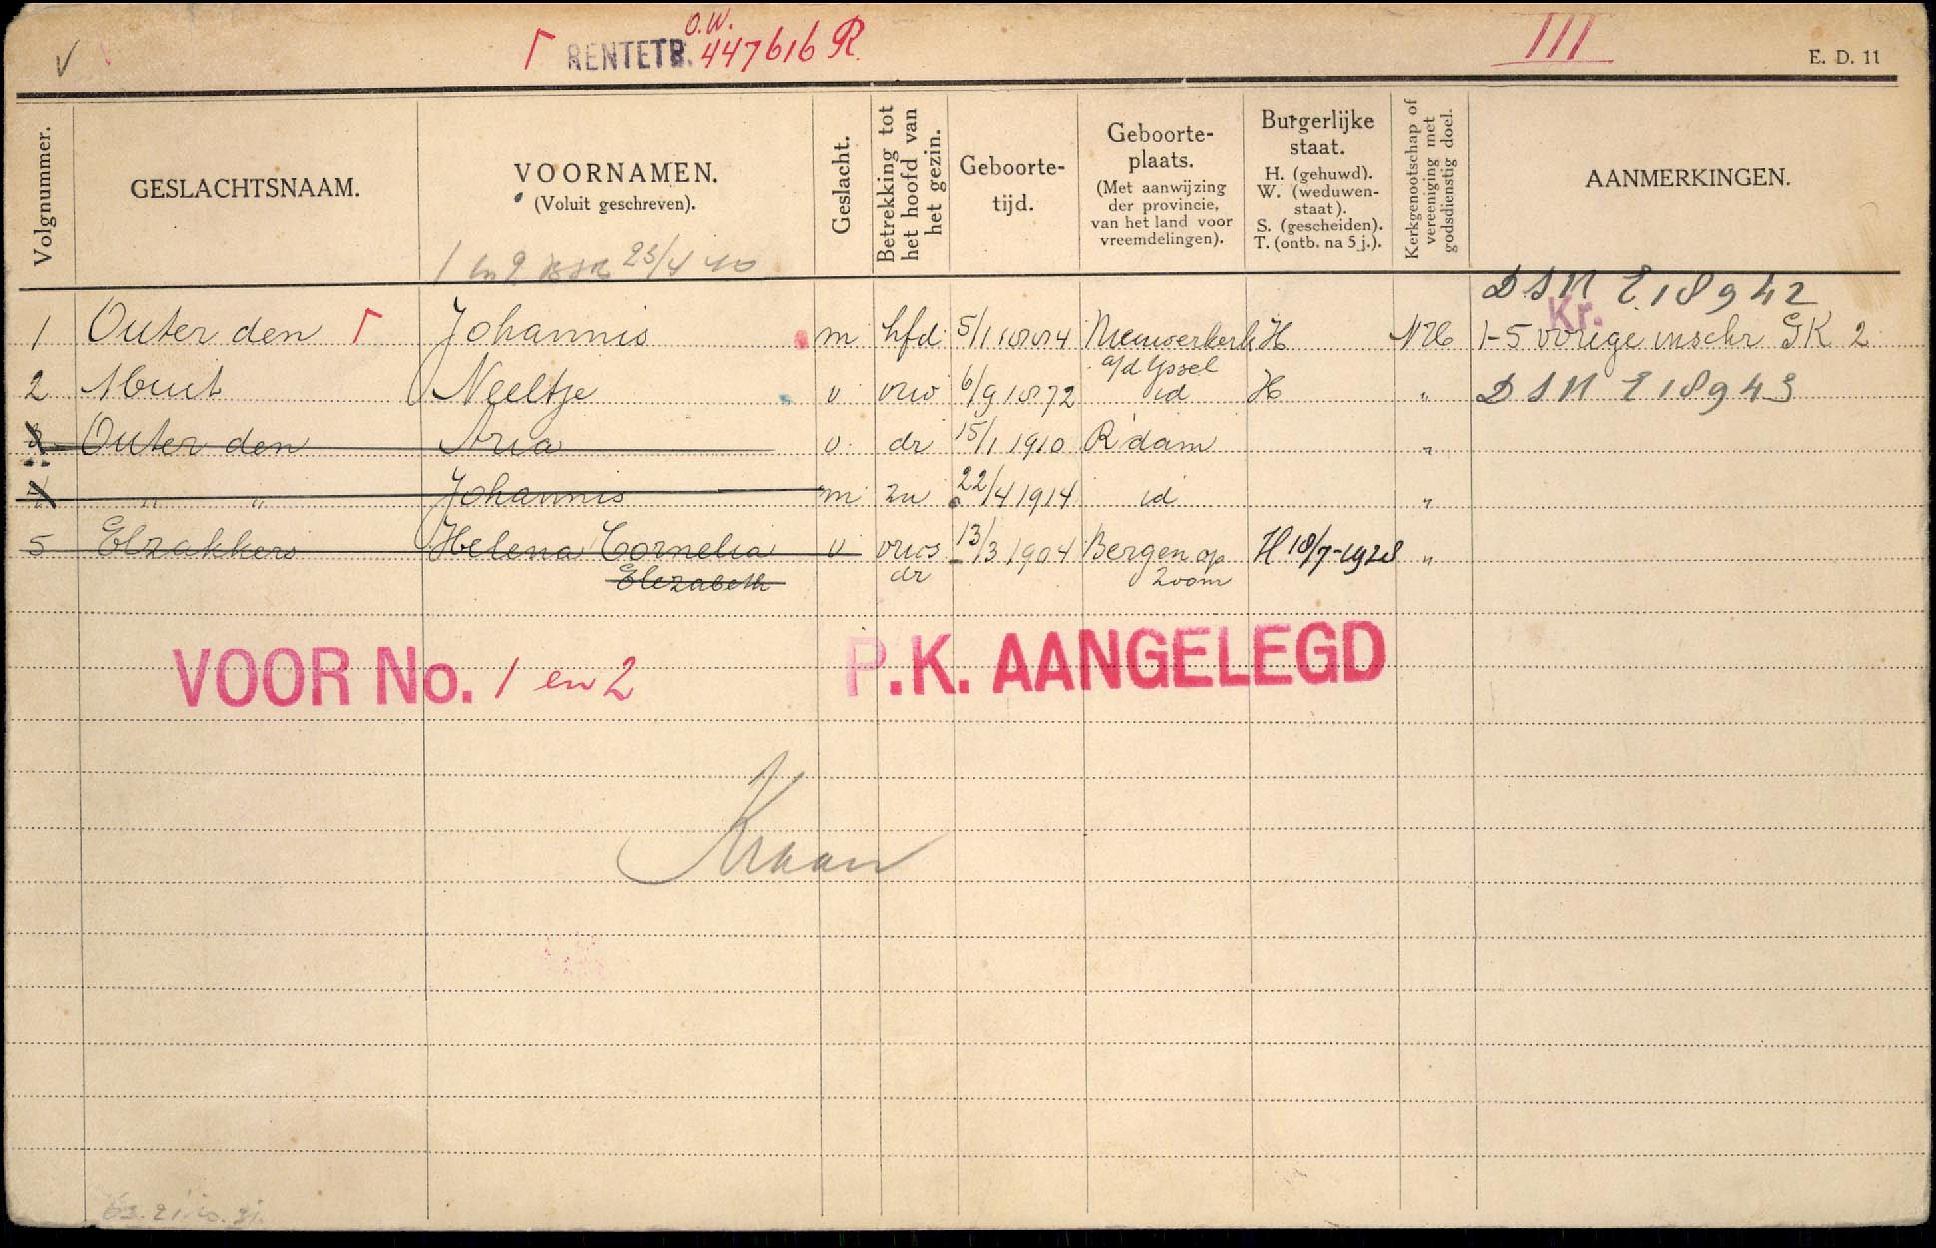 V
O.W.
Γ RENTETR. 447616 R.
III
E. D. 11
Volgnummer.
GESLACHTSNAAM.
VOORNAMEN.
(Voluit geschreven).
Geslacht.
Betrekking tot
het hoofd van
het gezin.
Geboorte-
tijd.
Geboorte-
plaats.
(Met aanwijzing
der provincie,
van het land voor
vreemdelingen).
Burgerlijke
staat.
H. (gehuwd).
W. (weduwen-
staat).
S. (gescheiden).
T. (ontb. na 5 j.).
Kerkgenootschap of
vereeniging met
godsdienstig doel.
AANMERKINGEN.
23/4 40
DSM E 18942
Kr.
1 Outer den Γ Johannis m hfd 5/1 1884 Nieuwerkerk H NH 1-5 vorige inschr GK 2
a/d Yssel
2 Neeltje v vrw 6/9 1872 id H " DSM E 18943
3 Outer den Aria v dr 15/1 1910 R'dam "
4 " " Johannis m zn 22/4 1914 id "
5 Elzakkers Helena Cornelia v vrws 13/3 1904 Bergen op H 18/7-1928 "
Elezabeth dr Zoom
VOOR No. 1 en 2 P.K. AANGELEGD
Kraan